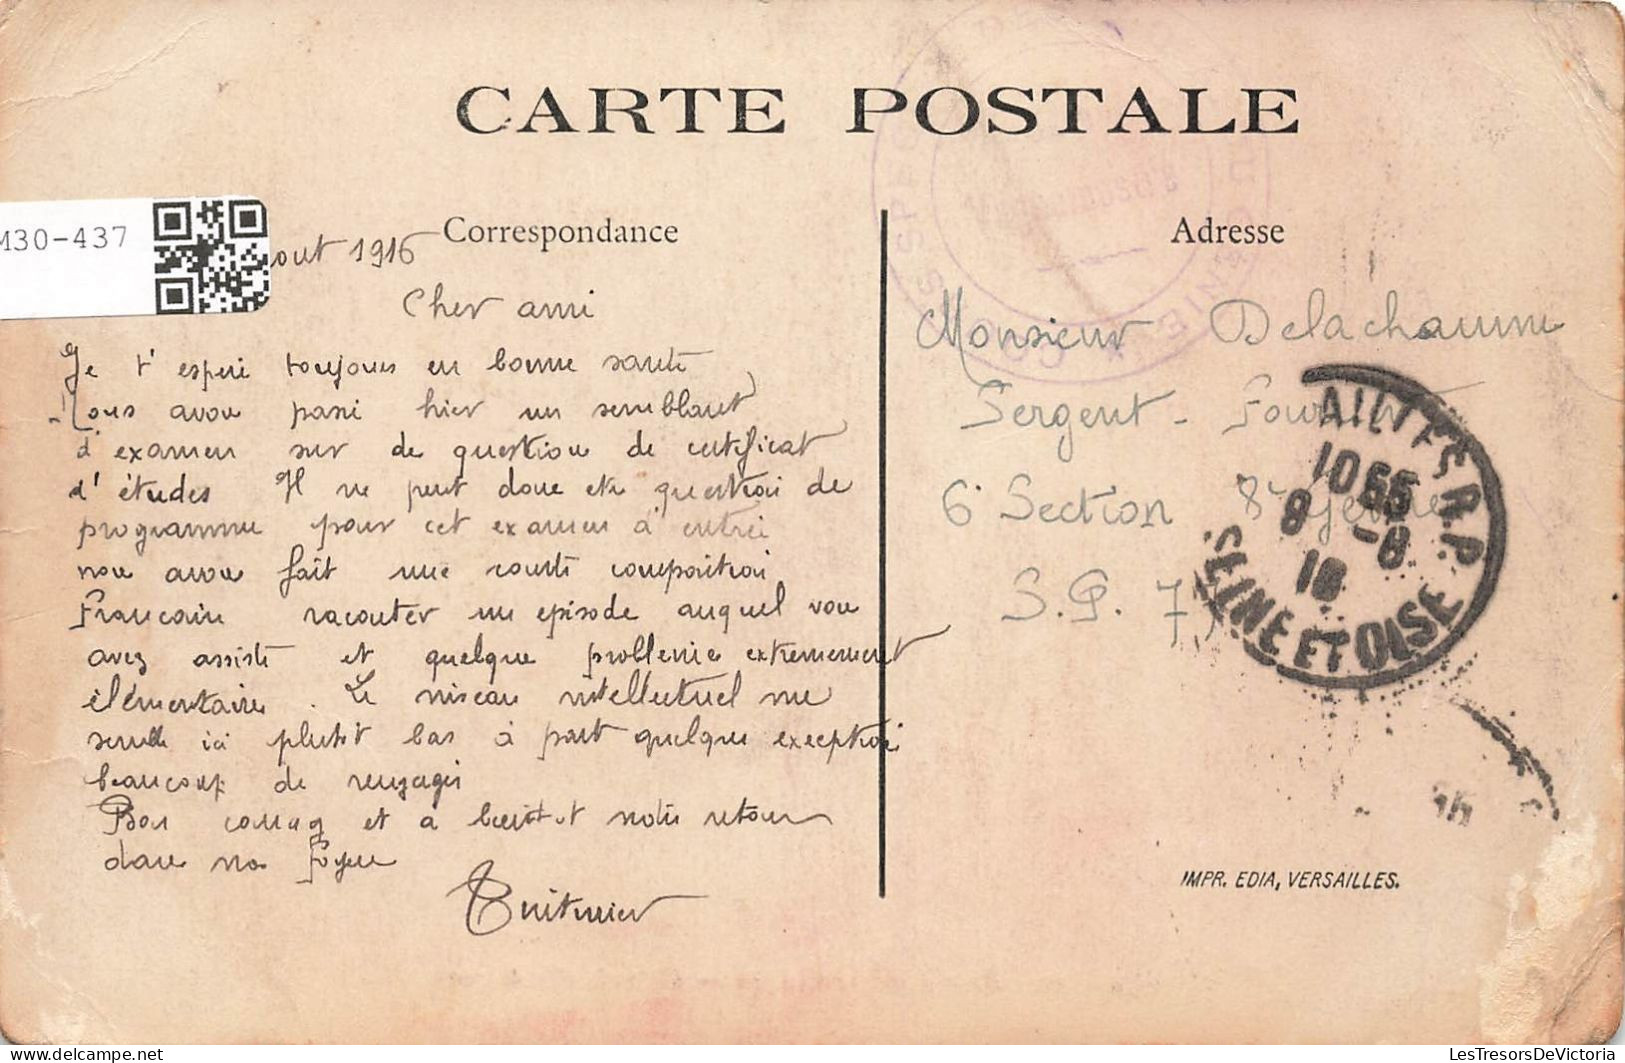 CARTE POSTALE
M30-437
Correspondance
Adresse
out 1916
Cher ami
Je t'espere toujours en bonne santé
Nous avons passé hier un semblant
d'examen sur de question de certificat
d'études Il ne peut donc etre question de
programme pour cet examen d'entrée
nous avons fait une courte composition
Francaise racouter un episode auquel vous
avez assisté et quelques problemes extremement
élémentaires. Le niveau intellectuel me
semble ici plutôt bas à part quelques exceptions
beaucoup de rengagés
Bon courag et à bientot notre retour
dans nos foyers
Monsieur Delachaume
Sergent - Fourrier
6e Section 8e Genie
S. P. 7
VERSAILLES R.P.
SEINE ET OISE
IMPR. EDIA, VERSAILLES.
LesTresorsDeVictoria